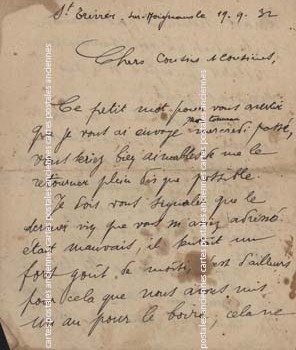 St Trivier-sur-Moignans le 19.9.32
Chers Cousins et cousines,
Ce petit mot pour vous avertir
que je vous ai envoyé mon tonneau mercredi passé,
vous seriez bien aimables de me le
retourner plein dès que possible.
Je dois vous signaler que le
dernier vin que vous m'aviez adressé
était mauvais, il sentait un
fort goût de moisi, c'est d'ailleurs
pour cela que nous avons mis
un an pour le boire, cela ne
postales anciennes cartes postales anciennes cartes postales anciennes
postales anciennes cartes postales anciennes cartes postales anciennes